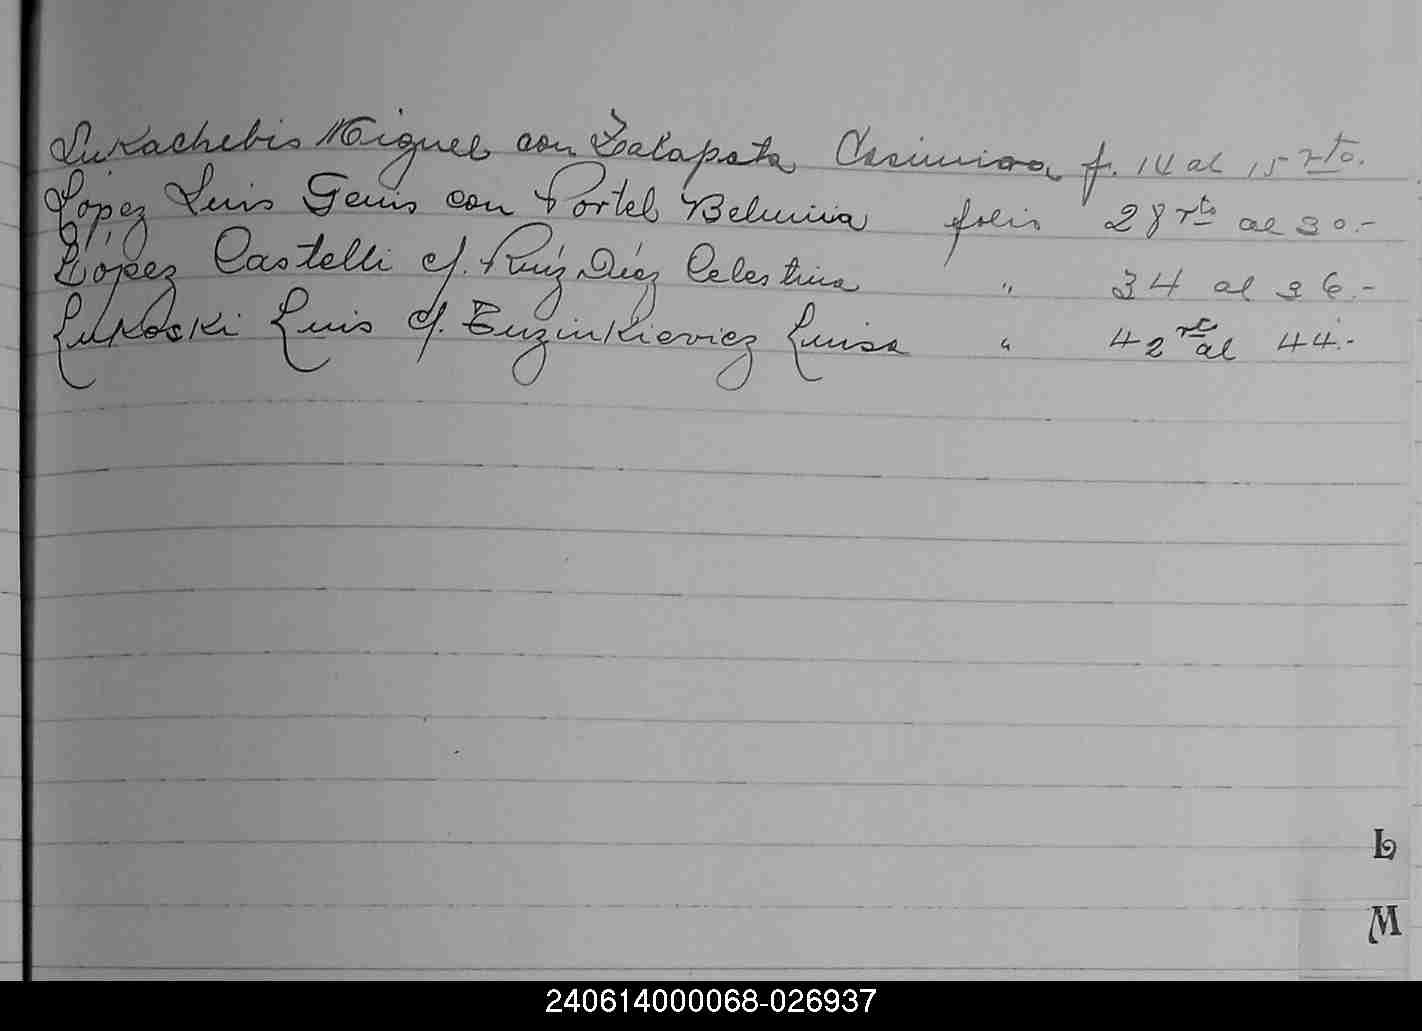 Lukachebis Miguel con Zalapata Casimira f. 14 al 15 rto.
López Luis Genis con Portel Belmira folio 28 rto al 30.-
López Castelli c/. Ruíz Díez Celestina " 34 al 36.-
Lukoski Luis c/. Buzinkievicz Luisa " 42 rto al 44.-
L
M
240614000068-026937